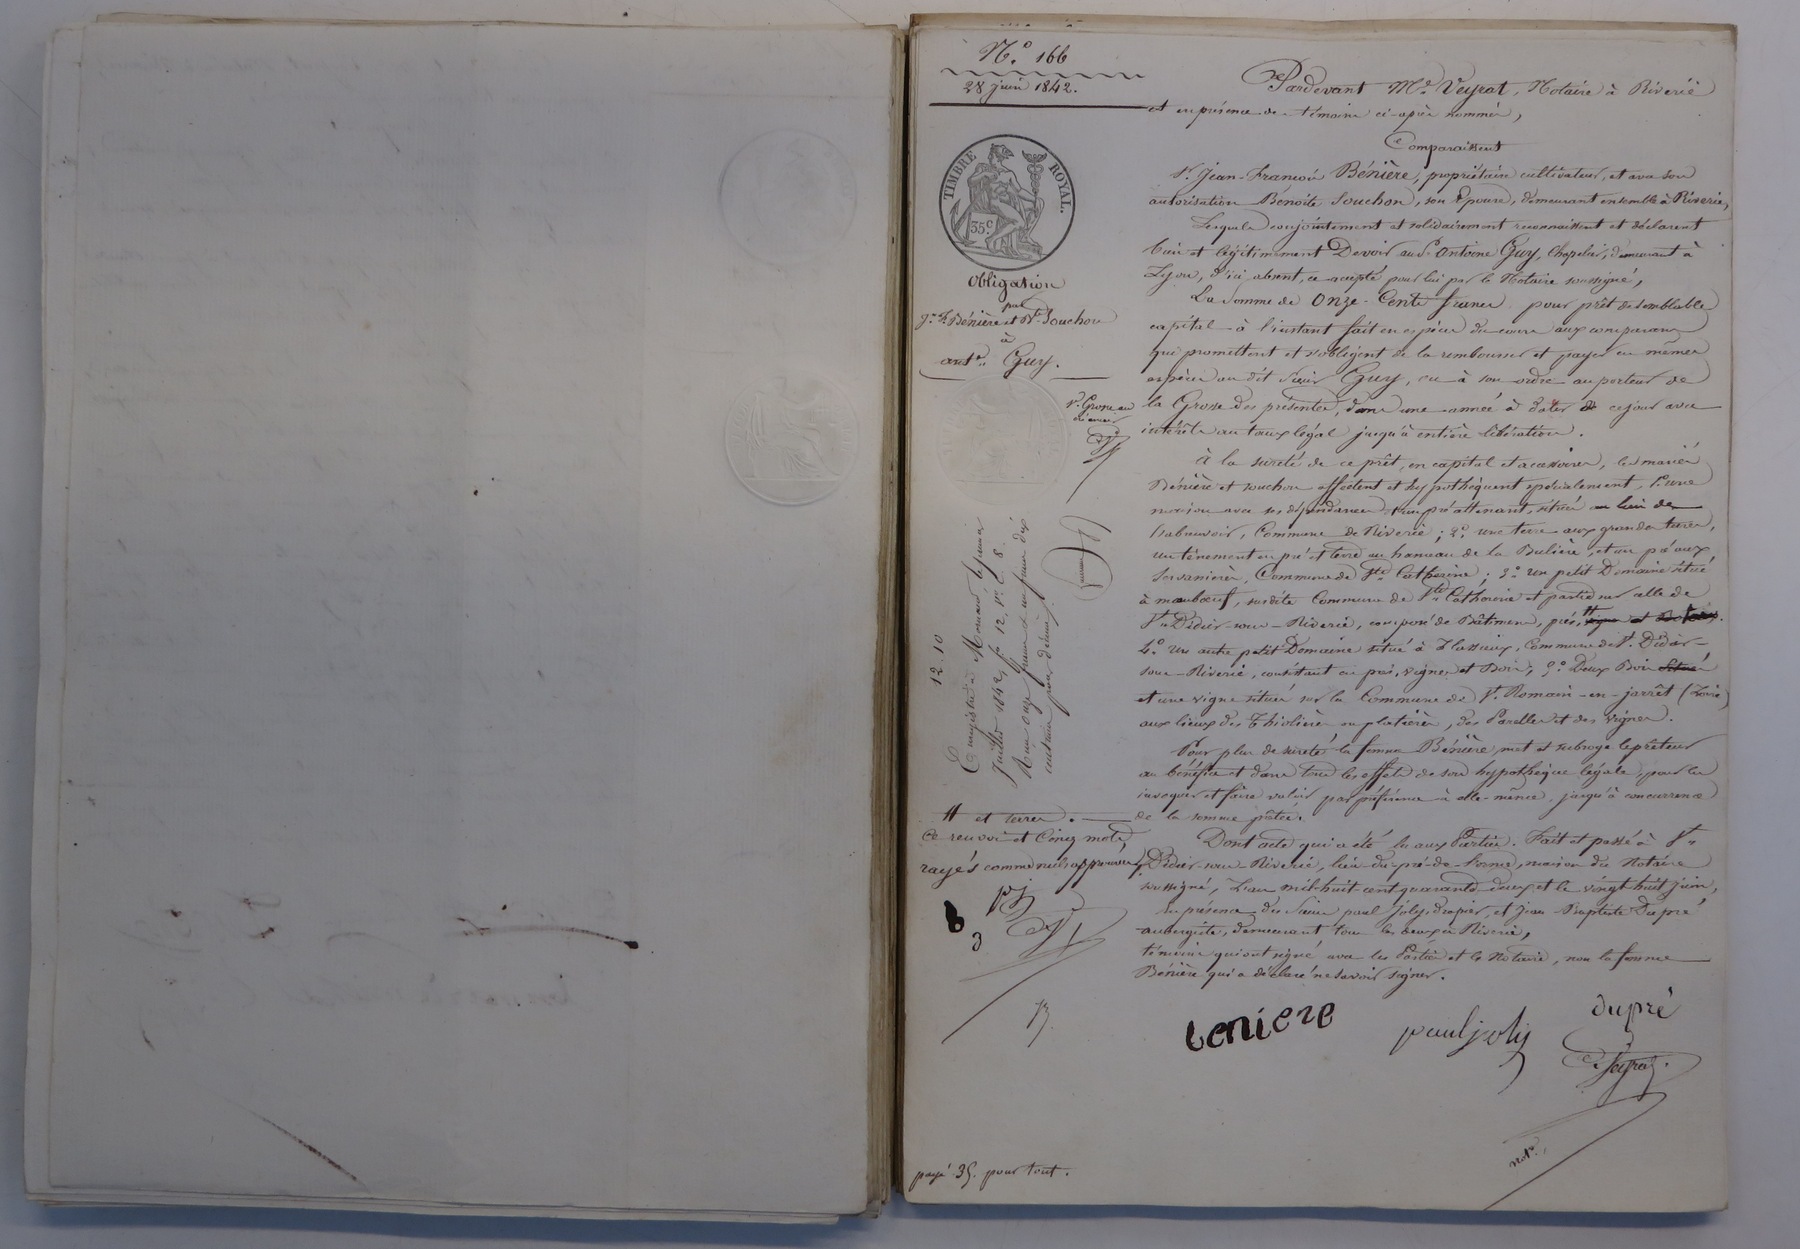 N.° 166
28 juin 1842.
TIMBRE ROYAL.
35.c
Obligation
par
J.n F. Bénière et B.te Souchon
à
ant.ne Guy.
p.r Grosse au
créancier
Enregistré à Mornant le premier
Juillet 1842 f.° 12. v.° c. 8.
Reçu onze francs & un franc dix
centimes pour décime.
12.10
# et terres. —
Ce renvoi et Cinq mots
rayés comme nuls approuvés
payé 35. pour tout.
Pardevant M.e Veyrat, Notaire à Riverie
et en présence de témoins ci-après nommés,
Comparaissent
S.r Jean-François Bénière, propriétaire cultivateur, et avec son
autorisation Benoîte Souchon, son Epouse, demeurant ensemble à Riverie,
Lesquels conjointement et solidairement reconnaissent et déclarent
bien et légitimement Devoir au S.r Antoine Guy, Chapelier, demeurant à
Lyon, d'ici absent, ce accepté pour lui par le Notaire soussigné,
La Somme de Onze-Cents francs pour prêt de semblable
capital à l'instant fait en espèces du cours aux comparans
qui promettent et s'obligent de la rembourser et payer en mêmes
espèces au dit Sieur Guy, ou à son ordre au porteur de
la Grosse des présentes, dans une année à dater de ce jour avec
intérêts au taux légal jusqu'à entière libération.
À la sureté de ce prêt, en capital et accessoires, les mariés
Bénière et Souchon affectent et hypothèquent spécialement, 1.° une
maison avec ses dépendances et un pré attenant, situés au lieu de
l'abreuvoir, Commune de Riverie; 2.° une terre aux grandes terres,
un tènement en pré et terre au hameau de la Bulière, et un pré aux
Servanières, Commune de S.te Catherine; 3.° Un petit Domaine situé
à maubœuf, susdite Commune de S.te Catherine et partie sur celle de
S.t Didier-sous-Riverie, composé de Bâtimens, prés, # vignes et Bois.
4.° Un autre petit Domaine situé à Flassieux, Commune de S.t Didier-
sous-Riverie, consistant en prés, vignes et Bois; 5.° Deux Bois situés
et une vigne située sur la Commune de S.t Romain-en-jarrêt (Loire)
aux lieux des Thiolières ou platières, des Parelles et des vignes.
Pour plus de sureté la femme Bénière met et subroge le prêteur
au bénéfice et dans tous les effets de son hypothèque légale, pour les
invoquer et faire valoir par préférence à elle-même, jusqu'à concurrence
de la somme prêtée.
Dont acte qui a été lu aux Parties. Fait et passé à S.t
Didier-sous-Riverie, lieu du pré-de-, maison du Notaire
soussigné, L'an mil-huit cent quarante-deux et le vingt huit juin,
En présence des Sieurs paul joly, drapier, et jean Baptiste Dupré
aubergiste, demeurant tous les deux à Riverie,
témoins qui ont signé avec les Parties et le Notaire, non la femme
Bénière qui a déclaré ne savoir signer.
beniere
paul joly
dupré
Veyrat.
not.re